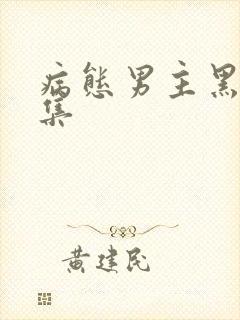 病態男主黑
集
黄建民